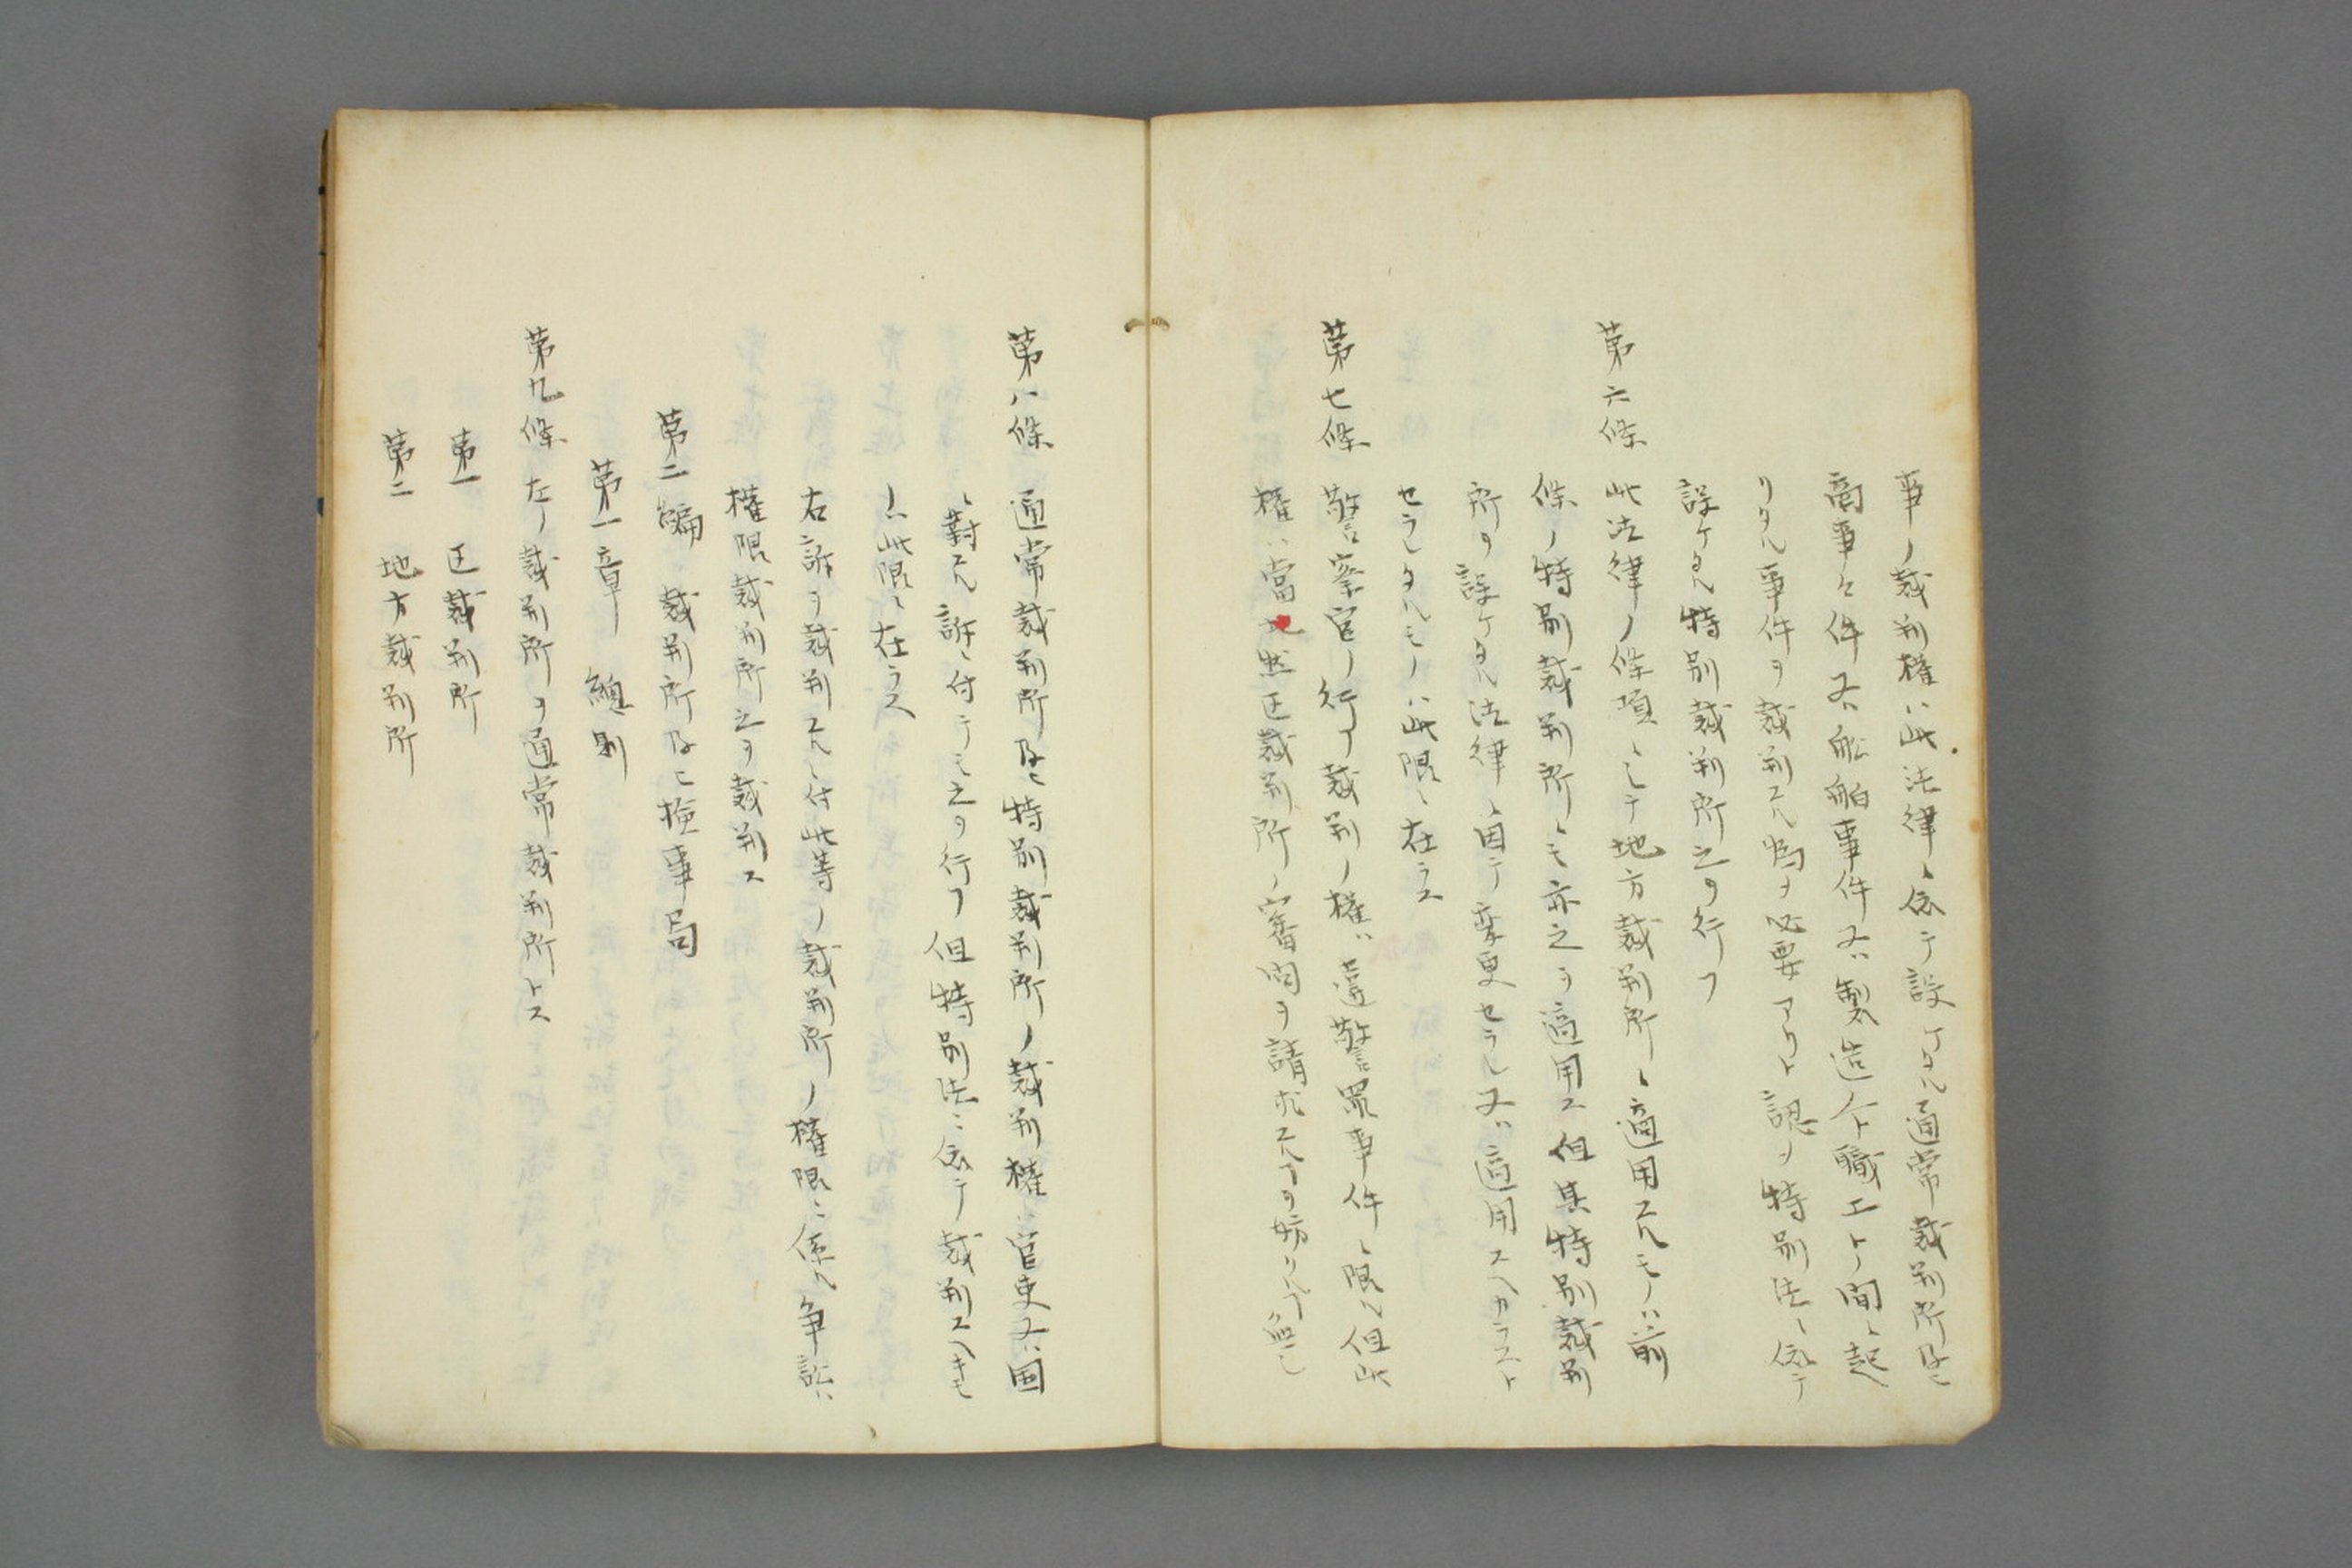 事ノ裁判権ハ此法律ニ依テ設ケタル通常裁判所及ヒ
商事々件又ハ船舶事件又ハ製造人ト職工トノ間ニ起
リタル事件ヲ裁判スル為メ必要アリト認メ特別法ニ依テ
設ケタル特別裁判所之ヲ行フ
第六條 此法律ノ條項ニシテ地方裁判所ニ適用スルモノハ前
條ノ特別裁判所ニモ亦之ヲ適用ス但其特別裁判
所ヲ設ケタル法律ニ因テ変更セラレ又ハ適用スヘカラスト
セラレタルモノハ此限ニ在ラス
第七條 警察官ノ行フ裁判ノ権ハ違警罪事件ニ限ル但此
権ハ當然区裁判所ノ審問ヲ請求スルヿヲ妨クルヿ無シ
第八條 通常裁判所及ヒ特別裁判所ノ裁判権ハ官吏又ハ国
ニ對スル訴ニ付テモ之ヲ行フ但特別法ニ依テ裁判スヘキモ
ノハ此限ニ在ラス
右訴ヲ裁判スルニ付此等ノ裁判所ノ権限ニ係ル争訟ハ
権限裁判所之ヲ裁判ス
第二編 裁判所及ヒ検事局
第一章 總則
第九條 左ノ裁判所ヲ通常裁判所トス
第一 区裁判所
第二 地方裁判所